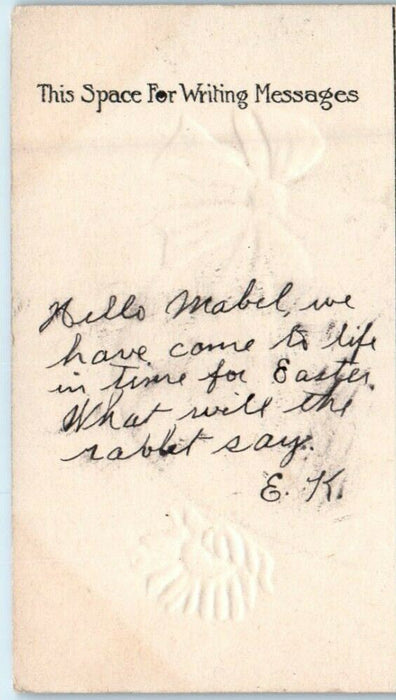 This Space For Writing Messages
Hello Mabel, we
have come to life
in time for Easter.
What will the
rabbit say.
E. K.